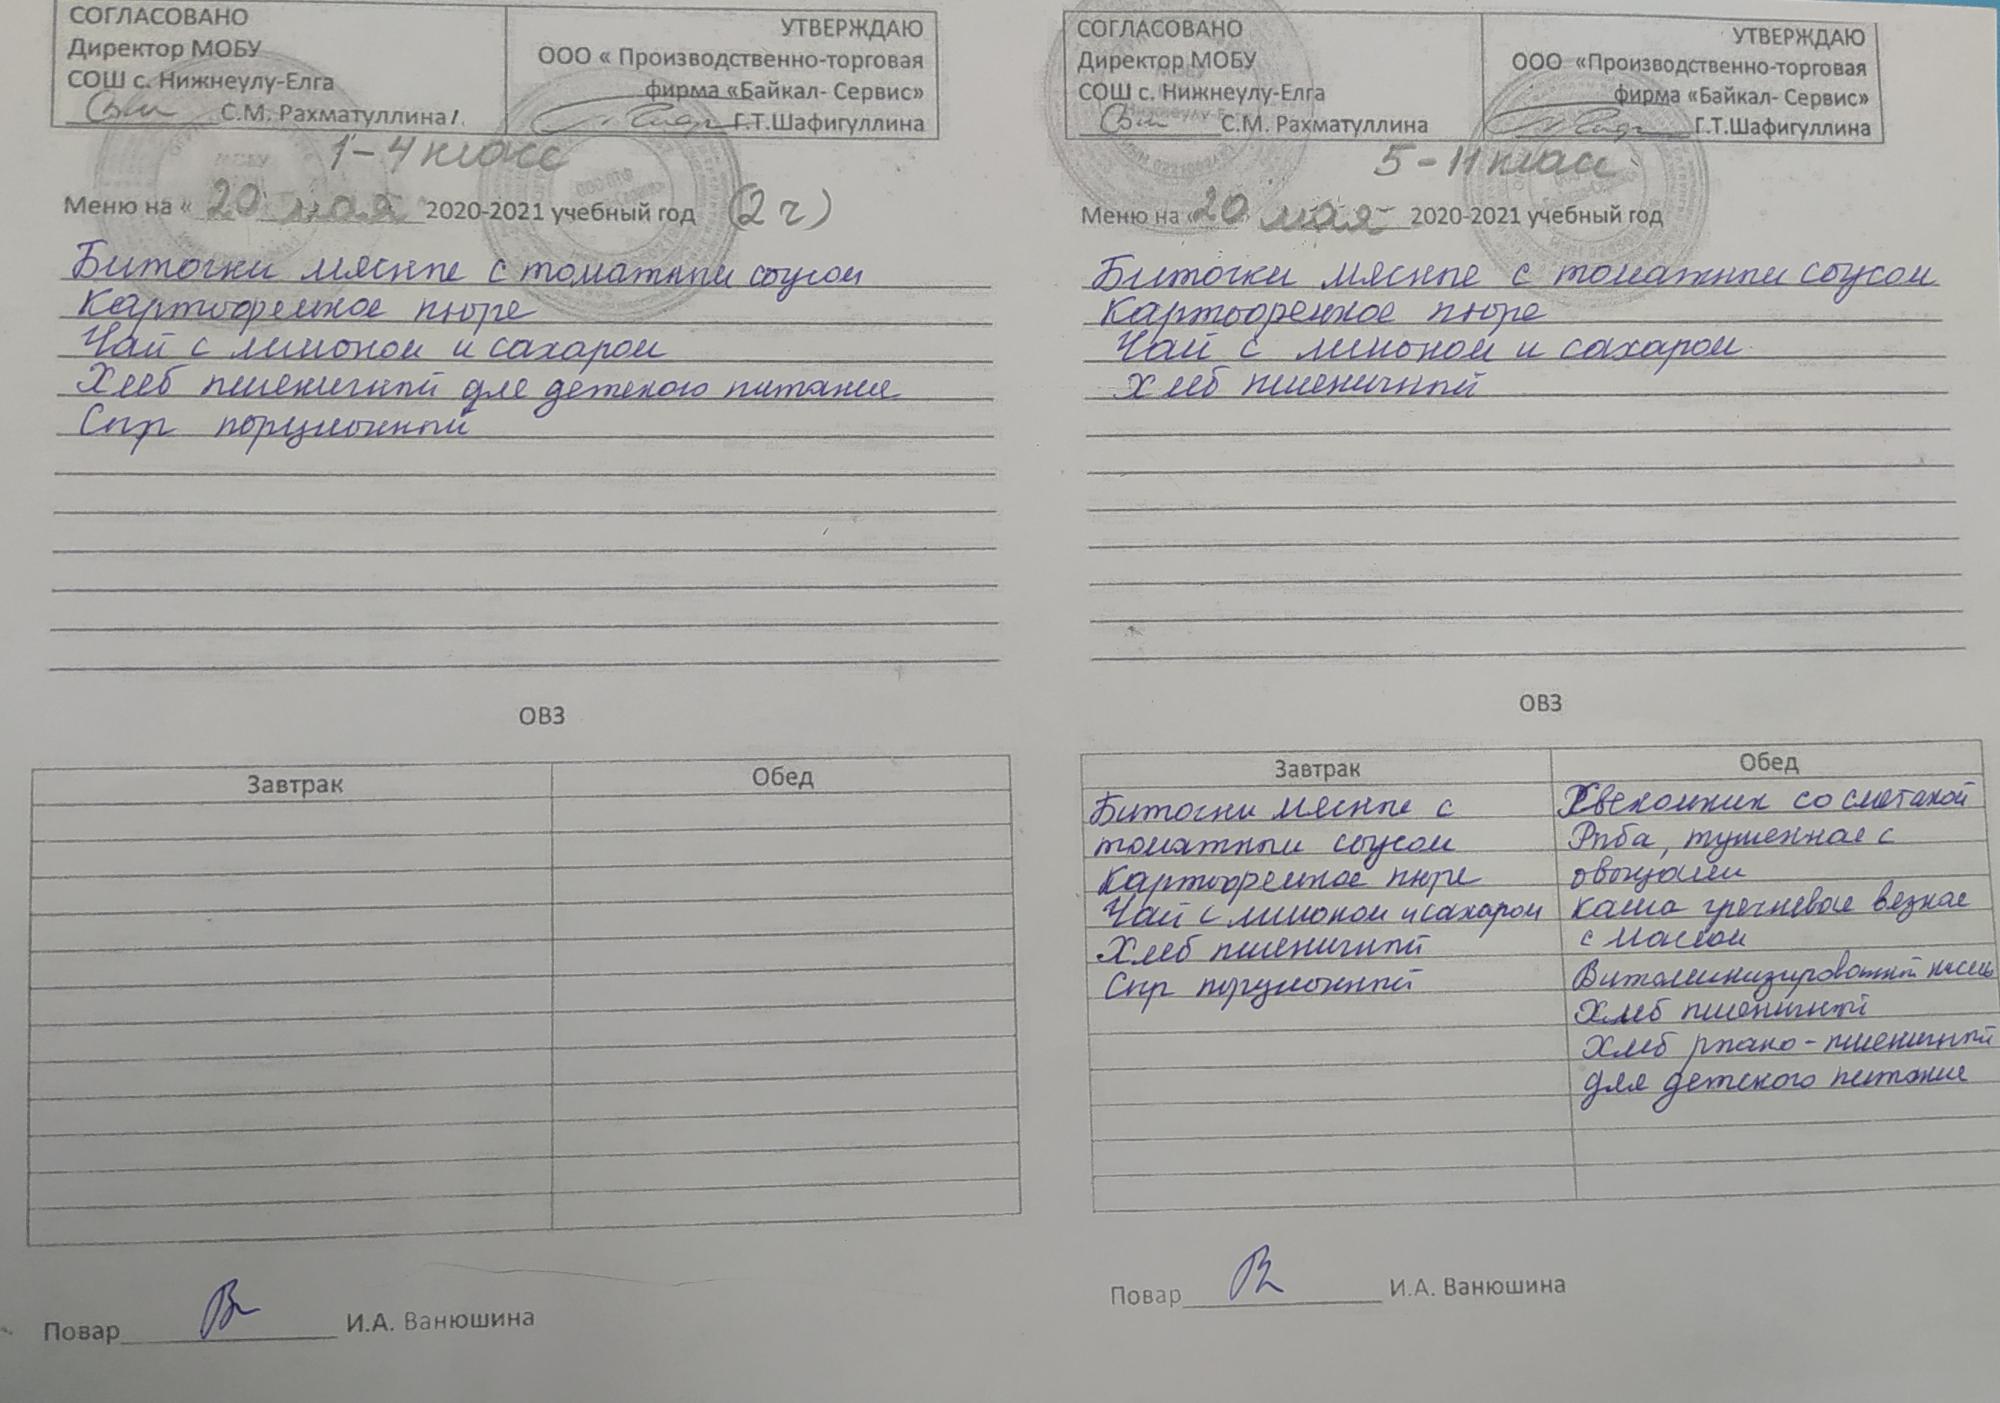 СОГЛАСОВАНО
Директор МОБУ
СОШ с. Нижнеулу-Елга
С.М. Рахматуллина
УТВЕРЖДАЮ
ООО « Производственно-торговая
фирма «Байкал- Сервис»
Г.Т.Шафигуллина
1-4 класс
Меню на « 20 мая 2020-2021 учебный год (2 г)
Биточки мясные с томатным соусом
Картофельное пюре
Чай с лимоном и сахаром
Хлеб пшеничный для детского питание
Сыр порционный
ОВЗ
Завтрак
Обед
Повар И.А. Ванюшина
СОГЛАСОВАНО
Директор МОБУ
СОШ с. Нижнеулу-Елга
С.М. Рахматуллина
УТВЕРЖДАЮ
ООО «Производственно-торговая
фирма «Байкал- Сервис»
Г.Т.Шафигуллина
5-11 класс
Меню на « 20 мая 2020-2021 учебный год
Биточки мясные с томатным соусом
Картофельное пюре
Чай с лимоном и сахаром
Хлеб пшеничный
ОВЗ
Завтрак
Биточки мясные с
томатным соусом
Картофельное пюре
Чай с лимоном и сахаром
Хлеб пшеничный
Сыр порционный
Обед
Свекольник со сметаной
Рыба, тушенная с
овощами
каша гречневая вязкая
с маслом
Витаминизированный кисель
Хлеб пшеничный
Хлеб ржано-пшеничный
для детского питание
Повар И.А. Ванюшина